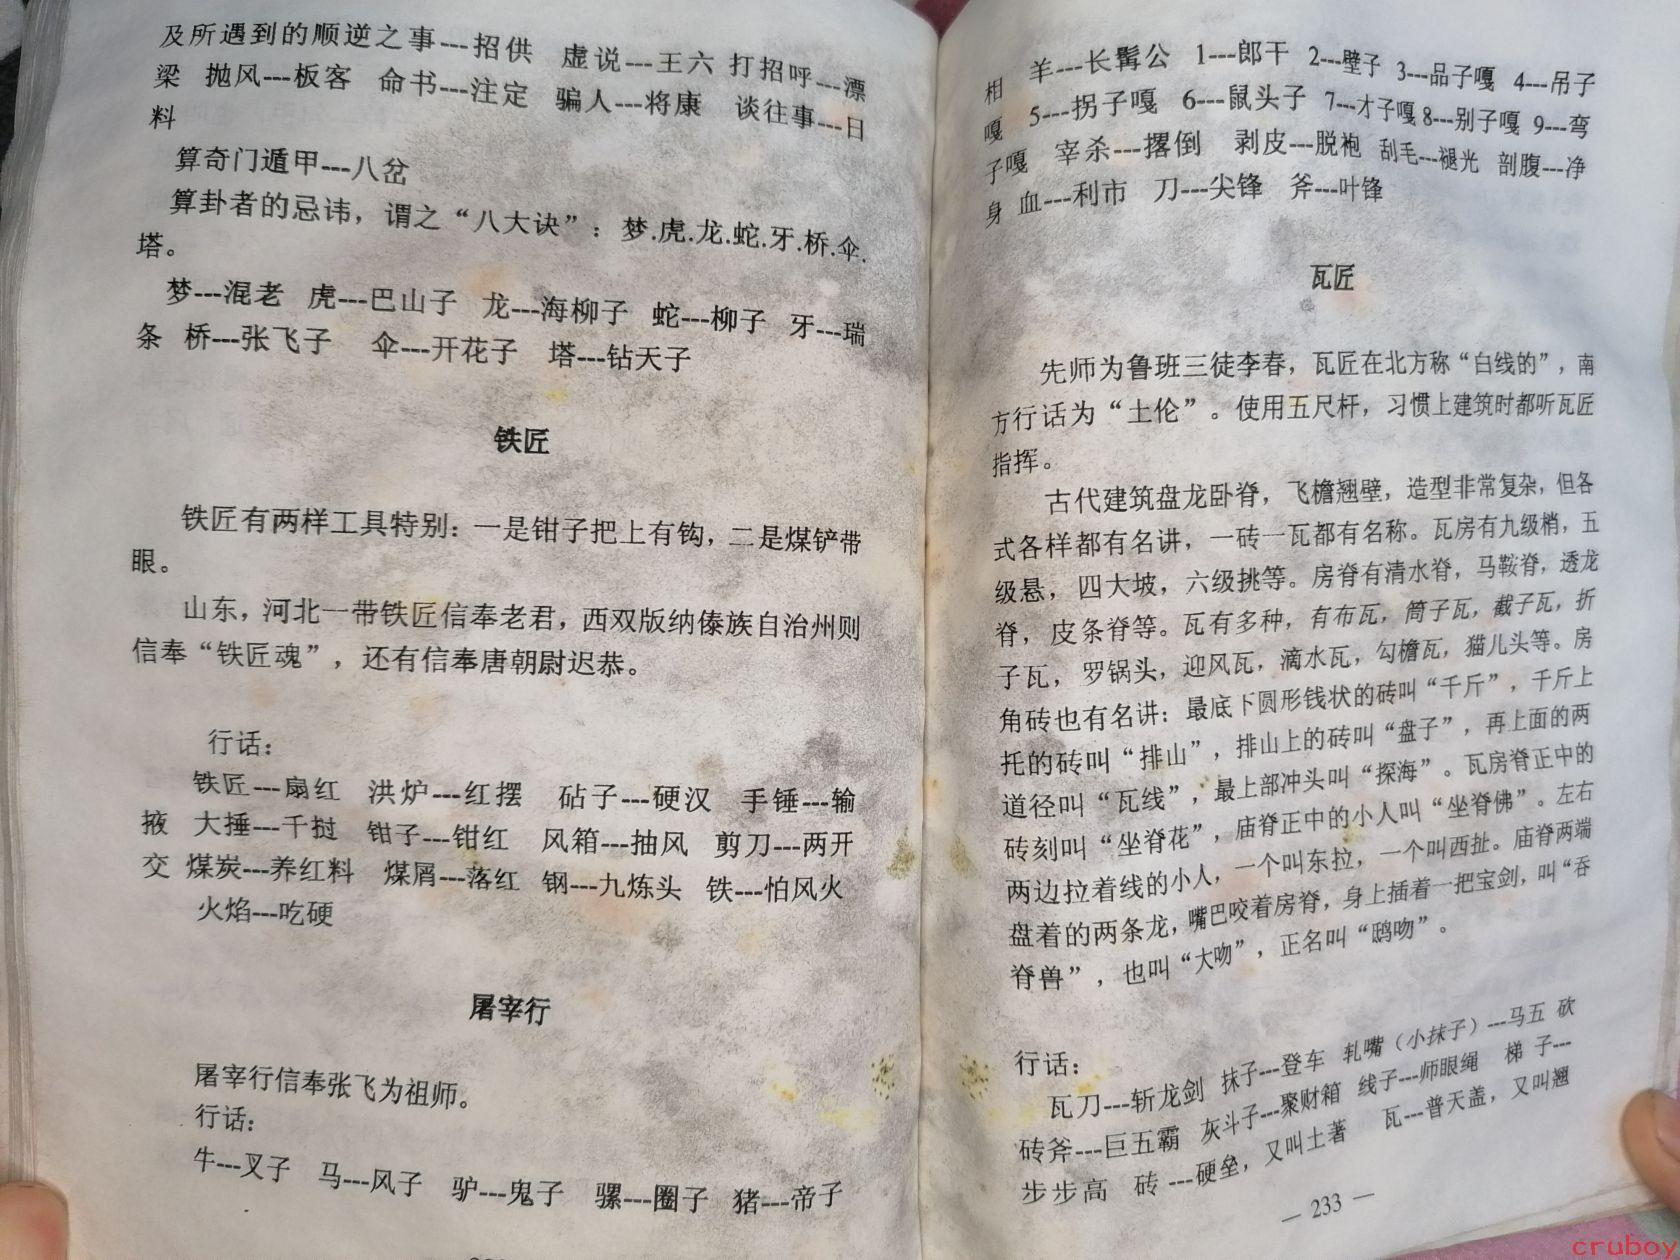 及所遇到的顺逆之事---招供 虚说---王六 打招呼---漂
梁 抛风---板客 命书---注定 骗人---将康 谈往事---日
料
算奇门遁甲---八岔
算卦者的忌讳，谓之“八大诀”：梦.虎.龙.蛇.牙.桥.伞.
塔。
梦---混老 虎---巴山子 龙---海柳子 蛇---柳子 牙---瑞
条 桥---张飞子 伞---开花子 塔---钻天子
铁匠
铁匠有两样工具特别：一是钳子把上有钩，二是煤铲带
眼。
山东，河北一带铁匠信奉老君，西双版纳傣族自治州则
信奉“铁匠魂”，还有信奉唐朝尉迟恭。
行话：
铁匠---扇红 洪炉---红摆 砧子---硬汉 手锤---输
掖 大捶---千挝 钳子---钳红 风箱---抽风 剪刀---两开
交 煤炭---养红料 煤屑---落红 钢---九炼头 铁---怕风火
火焰---吃硬
屠宰行
屠宰行信奉张飞为祖师。
行话：
牛---叉子 马---风子 驴---鬼子 骡---圈子 猪---帝子
羊---长髯公 1---郎干 2---壁子 3---品子嘎 4---吊子
嘎 5---拐子嘎 6---鼠头子 7---才子嘎 8---别子嘎 9---弯
子嘎 宰杀---撂倒 剥皮---脱袍 刮毛---褪光 剖腹---净
身 血---利市 刀---尖锋 斧---叶锋
相
瓦匠
先师为鲁班三徒李春，瓦匠在北方称“白线的”，南
方行话为“土伦”。使用五尺杆，习惯上建筑时都听瓦匠
指挥。
古代建筑盘龙卧脊，飞檐翘壁，造型非常复杂，但各
式各样都有名讲，一砖一瓦都有名称。瓦房有九级梢，五
级悬，四大坡，六级挑等。房脊有清水脊，马鞍脊，透龙
脊，皮条脊等。瓦有多种，有布瓦，筒子瓦，截子瓦，折
子瓦，罗锅头，迎风瓦，滴水瓦，勾檐瓦，猫儿头等。房
角砖也有名讲：最底下圆形钱状的砖叫“千斤”，千斤上
托的砖叫“排山”，排山上的砖叫“盘子”，再上面的两
道径叫“瓦线”，最上部冲头叫“探海”。瓦房脊正中的
砖刻叫“坐脊花”，庙脊正中的小人叫“坐脊佛”。左右
两边拉着线的小人，一个叫东拉，一个叫西扯。庙脊两端
盘着的两条龙，嘴巴咬着房脊，身上插着一把宝剑，叫“吞
脊兽”，也叫“大吻”，正名叫“鸱吻”。
行话：
瓦刀---斩龙剑 抹子---登车 轧嘴（小抹子）---马五 砍
砖斧---巨五霸 灰斗子---聚财箱 线子---师眼绳 梯 子---
步步高 砖 ---硬垒，又叫土著 瓦---普天盖，又叫翘
— 233 —
cruboy